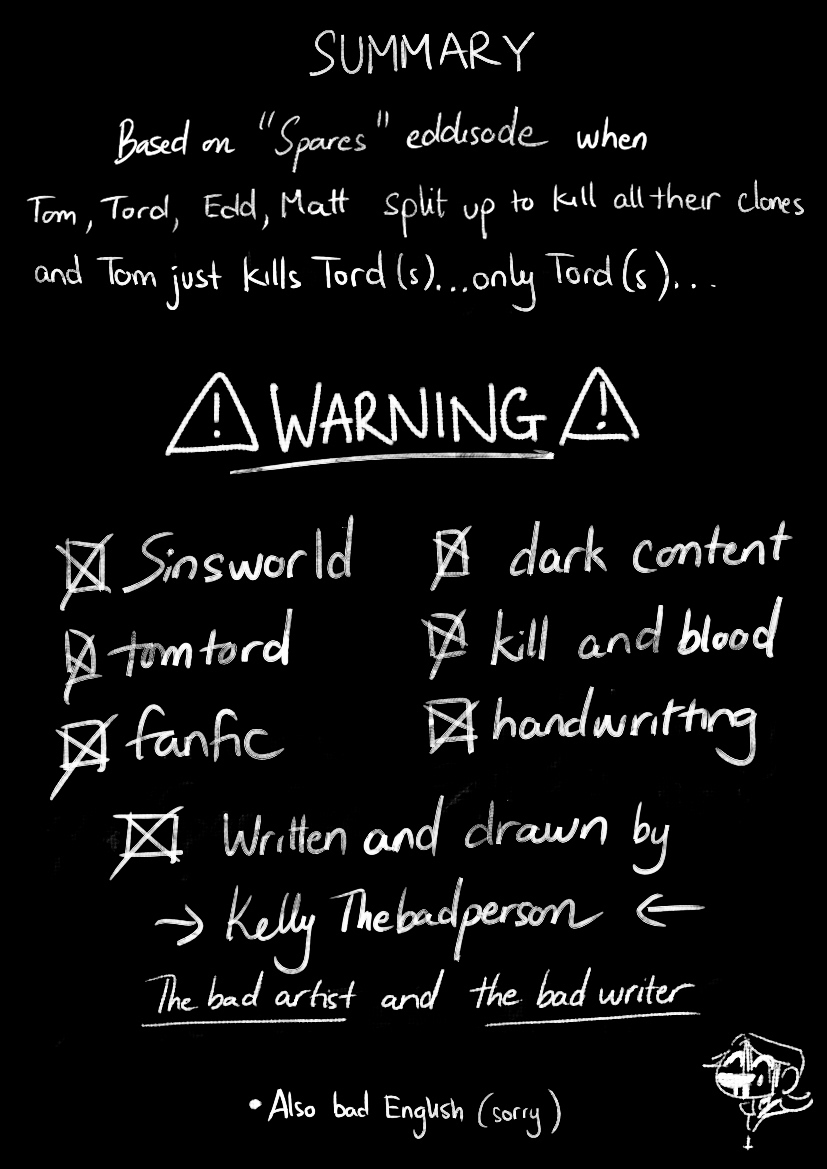 SUMMARY
Based on "Spares" eddisode when
Tom, Tord, Edd, Matt split up to kill all their clones
and Tom just kills Tord (s)...only Tord (s)...
! WARNING !
Sinsworld
dark content
tomtord
kill and blood
fanfic
handwritting
Written and drawn by
→ Kelly Thebadperson ←
The bad artist and the bad writer
• Also bad English (sorry)